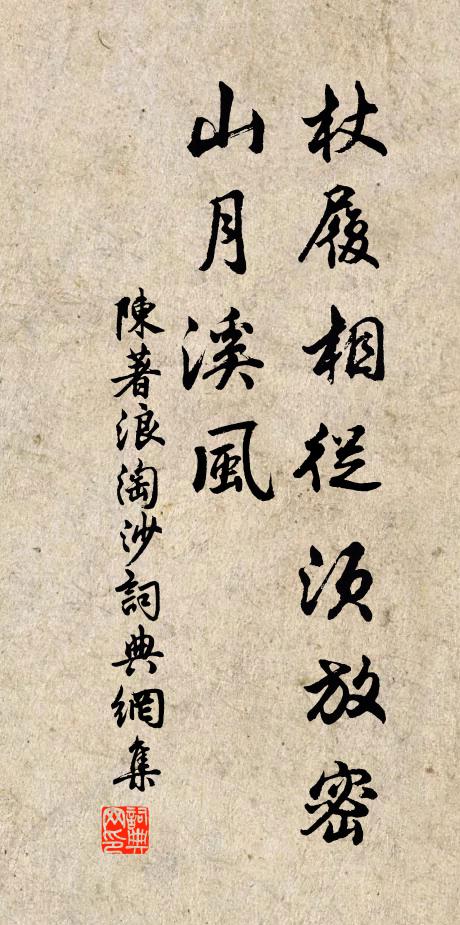 杖履相從須放密
山月溪風
陳著浪淘沙詞典網集
詞典
网印